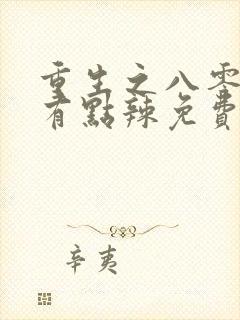 重生之八零
有點辣免費
辛夷